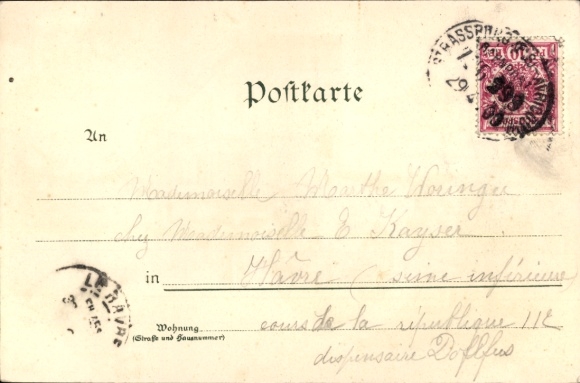 STRASSBURG
29.4.99
10
Postkarte
An
Mademoiselle Marthe
chez Mademoiselle E Kayser
in Hâvre (seine inférieure
Wohnung
(Straße und Hausnummer)
cours de la république 112
dispensaire Dollfus
LE HAVRE